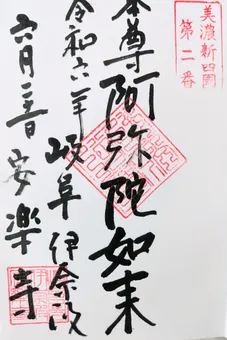 美濃新四国
第二番
本尊阿弥陀如来
令和六年 岐阜 伊奈波
六月三日 安楽寺